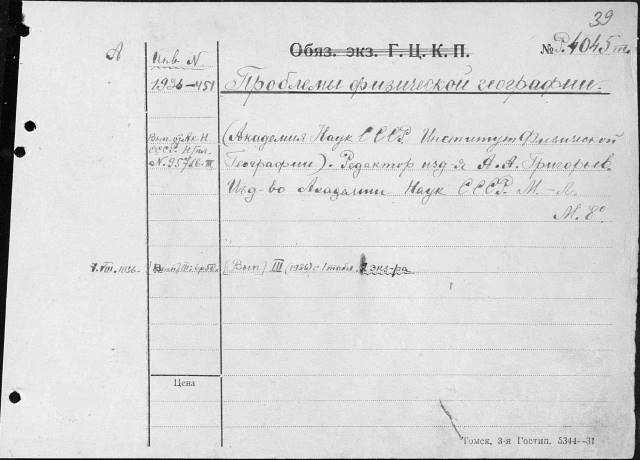 39
А
Инв. N.
Обяз. экз. Г. Ц. К. П.
№ Р.4045
1936—451
Проблемы физической географии.
Вып. от Ак. Н.
СССР.
N. 95726-III
(Академия Наук СССР. Институт Физической
Географии). Редактор изд-я А. А. Григорьев.
Изд-во Академии Наук СССР. М.—Л.
М. 8°
1.VIII.1936.
[Вып.] III (1936) с 1 табл. 2 экз-ра
Цена
Томск, 3-я Гостип. 5344—31